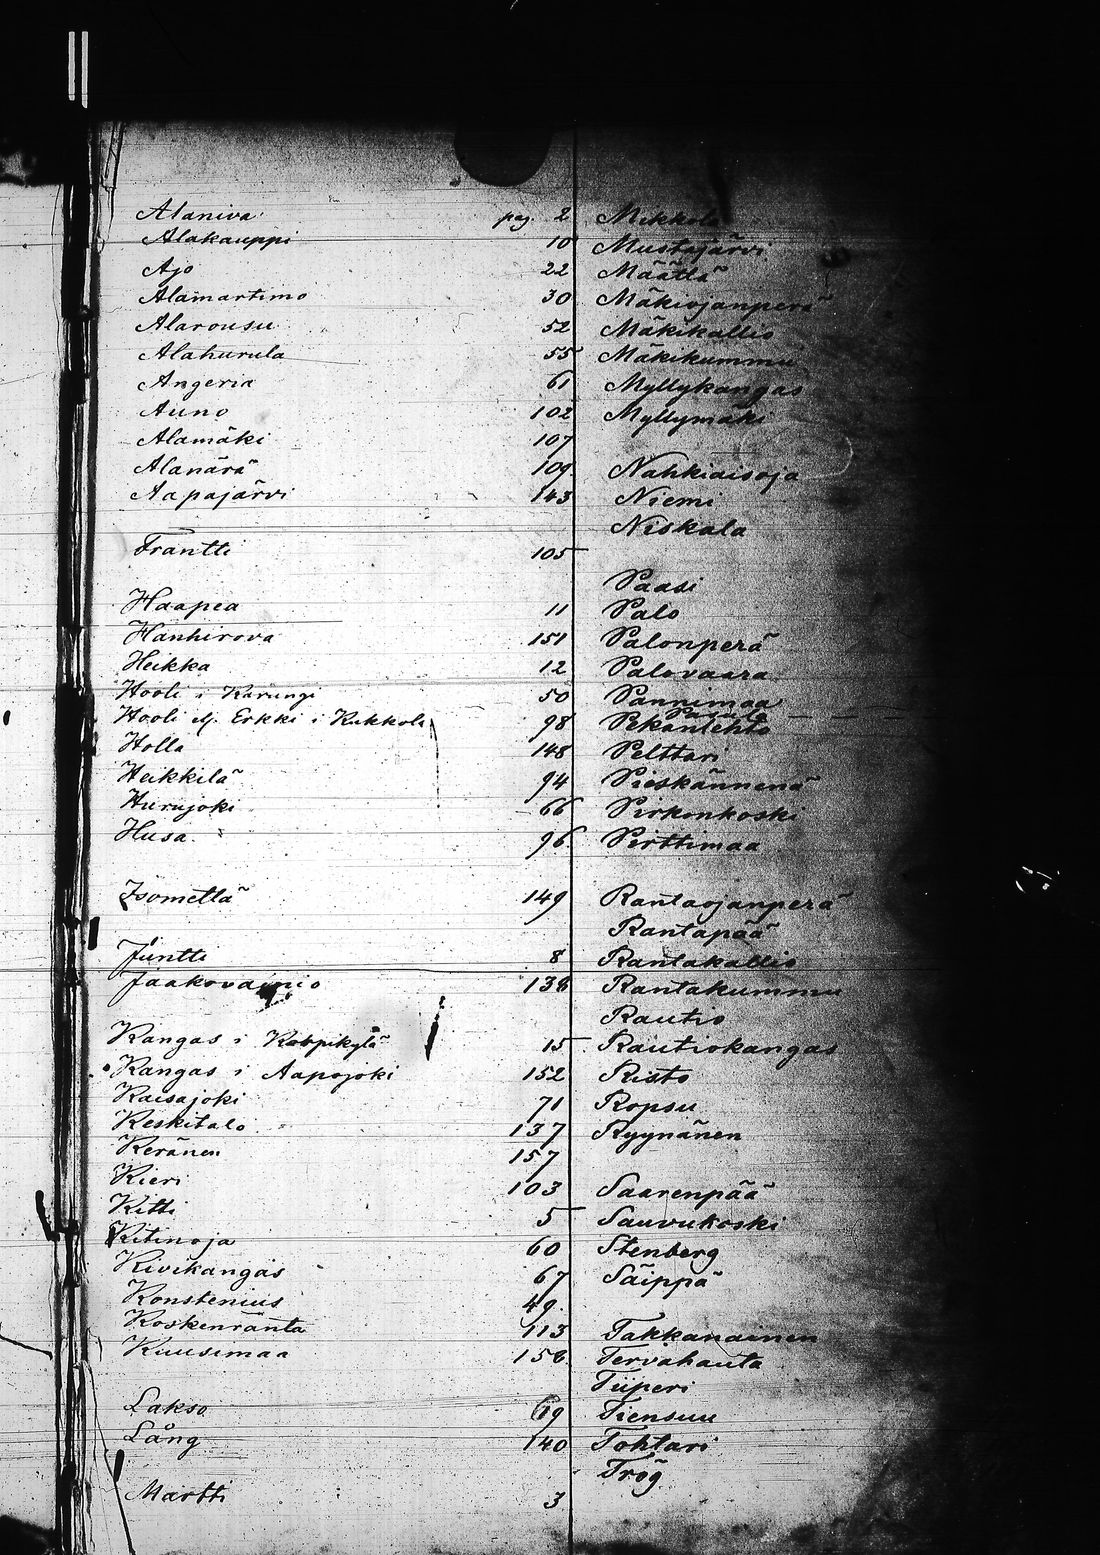 Alaniva pag. 2
Alakauppi 10
Ajo 22
Alamartimo 30
Alarousu 52
Alahurula 55
Angeria 61
Auno 102
Alamäki 107
Alanärä 109
Aapajärvi 143
Frantti 105
Haapea 11
Hanhirova 151
Heikka 12
Hooli i Karungi 50
Hooli Erkki i Kukkola 98
Holla 148
Heikkilä 94
Hurujoki 66
Husa 96
Isomettä 149
Juntti 8
Jaakovainio 138
Kangas i 15
Kangas i Aapojoki 152
Kaisajoki 71
Keskitalo 137
Keränen 157
Kieri 103
Kitti 5
Kitinoja 60
Kivikangas 67
Konstenius 49
Koskenranta 113
Kuusimaa 158
Lakso 69
Lång 140
Martti 3
Mikkola
Mustajärvi
Määttä
Mäkiojanperä
Mäkikallio
Mäkikummu
Myllykangas
Myllymäki
Nahkiaisoja
Niemi
Niskala
Paasi
Palo
Palonperä
Palovaara
Pannimaa
Pekanlehto
Pelttari
Pieskännenä
Pirkonkoski
Perttimaa
Rantaojanperä
Rantapää
Rantakallio
Rantakummu
Rautio
Rautiokangas
Risto
Ropsu
Ryynänen
Saarenpää
Sauvukoski
Stenberg
Säippä
Takkanainen
Tervahauta
Tiiperi
Tiensuu
Tohtari
Trög